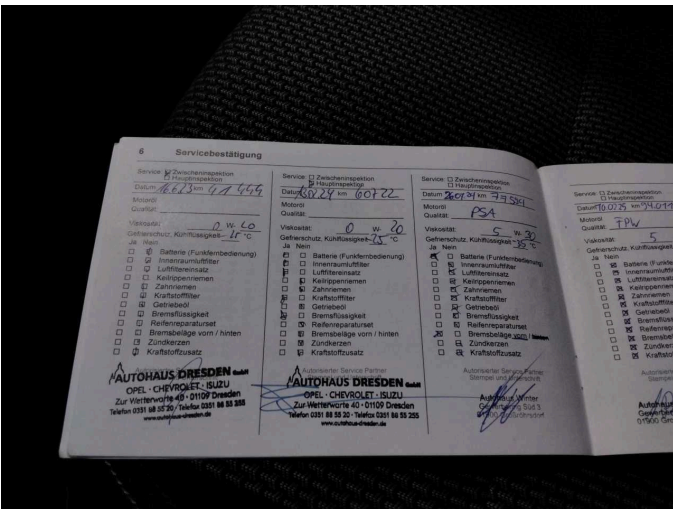 6 Servicebestätigung
Service: Zwischeninspektion
Hauptinspektion
Datum km 41 444
Motoröl
Qualität:
Viskosität: 0 W- 20
Gefrierschutz, Kühlflüssigkeit °C
Ja Nein
Batterie (Funkfernbedienung)
Innenraumluftfilter
Luftfiltereinsatz
Keilrippenriemen
Zahnriemen
Kraftstofffilter
Getriebeöl
Bremsflüssigkeit
Reifenreparaturset
Bremsbeläge vorn / hinten
Zündkerzen
Kraftstoffzusatz
AUTOHAUS DRESDEN GmbH
OPEL · CHEVROLET · ISUZU
Zur Wetterwarte 40 · 01109 Dresden
Telefon 0351 88 55 20 · Telefax 0351 88 55 255
www.autohaus-dresden.de
Service: Zwischeninspektion
Hauptinspektion
Datum km 60722
Motoröl
Qualität:
Viskosität: 0 W- 20
Gefrierschutz, Kühlflüssigkeit -25 °C
Ja Nein
Batterie (Funkfernbedienung)
Innenraumluftfilter
Luftfiltereinsatz
Keilrippenriemen
Zahnriemen
Kraftstofffilter
Getriebeöl
Bremsflüssigkeit
Reifenreparaturset
Bremsbeläge vorn / hinten
Zündkerzen
Kraftstoffzusatz
Autorisierter Service Partner
AUTOHAUS DRESDEN GmbH
OPEL · CHEVROLET · ISUZU
Zur Wetterwarte 40 · 01109 Dresden
Telefon 0351 88 55 20 · Telefax 0351 88 55 255
www.autohaus-dresden.de
Service: Zwischeninspektion
Hauptinspektion
Datum km
Motoröl
Qualität: PSA
Viskosität: 5 W- 30
Gefrierschutz, Kühlflüssigkeit -35 °C
Ja Nein
Batterie (Funkfernbedienung)
Innenraumluftfilter
Luftfiltereinsatz
Keilrippenriemen
Zahnriemen
Kraftstofffilter
Getriebeöl
Bremsflüssigkeit
Reifenreparaturset
Bremsbeläge vorn / hinten
Zündkerzen
Kraftstoffzusatz
Autorisierter Service Partner
Stempel und Unterschrift
Autohaus Winter
Gewerbering Süd 3
01900 Großröhrsdorf
Service: Zwischeninspektion
Hauptinspektion
Datum km
Motoröl
Qualität:
Viskosität: 5
Gefrierschutz, Kühlflüssigkei
Ja Nein
Batterie (Funkfe
Innenraumluftfi
Luftfiltereinsatz
Keilrippenriemen
Zahnriemen
Kraftstofffilter
Getriebeöl
Bremsflüss
Reifenrep
Bremsbel
Zündker
Kraftsto
Autorisier
Stempel
Autohaus
Gewerber
01900 Gro